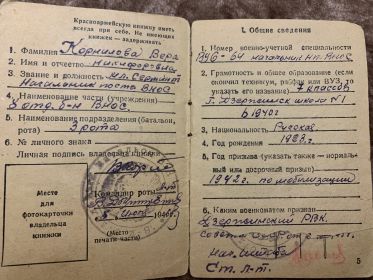 Красноармейскую книжку иметь
всегда при себе. Не имеющих
книжек — задерживать
1. Фамилия Корнилова Вера
2. Имя и отчество Никифоровна
3. Звание и должность мл. Сержант
Начальник поста ВНОС
4. Наименование части (учреждения)
ВНОС
5. Наименование подразделения (батальон,
рота) 3 рота
6. № личного знака
Личная подпись владельца книжки
Место
для
фотокарточки
владельца
книжки
Командир роты
194 г.
(Место
печати части)
I. Общие сведения
1. Номер военно-учетной специальности
ВУС-64 начальник НП ВНОС
2. Грамотность и общее образование (если
окончил техникум, рабфак или ВУЗ, то
указать его название) 7 классов
г. Дзержинск школа №1
в 1940 г
3. Национальность Русская
4. Год рождения
5. Год призыва (указать также — нормаль-
ный или досрочный призыв)
1942 г. по мобилизации
6. Каким военкоматом призван
Дзержинский РВК
Ст. л-т.
5